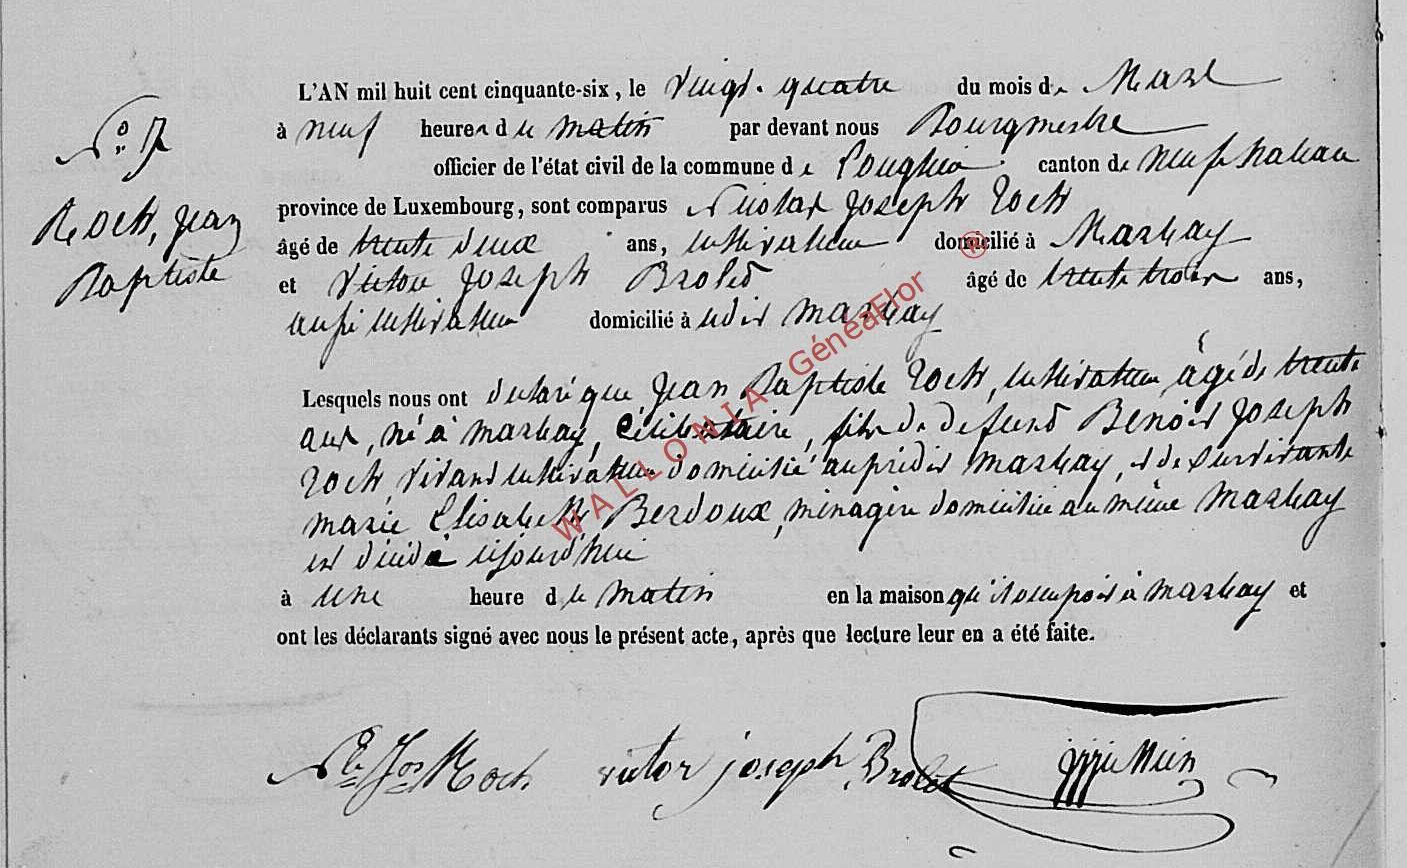 N° 7
Roch, Jean
Baptiste
L'AN mil huit cent cinquante-six, le vingt-quatre du mois de Mars
à neuf heures du matin par devant nous Bourgmestre
officier de l'état civil de la commune de Longlier canton de Neufchateau
province de Luxembourg, sont comparus Nicolas Joseph Roch
âgé de trente deux ans, cultivateur domicilié à Marbay
et Victor Joseph Brolet âgé de trente trois ans,
aussi cultivateur domicilié à udit Marbay
Lesquels nous ont declaré que Jean Baptiste Roch, cultivateur âgé de trente
ans, né à Marbay, célibataire, fils de defunt Benoit Joseph
Roch, vivant cultivateur domicilié audit Marbay, et de survivante
marie Elisabeth Berdoux, ménagère domiciliée au même Marbay
est décédé aujourd'hui
à une heure du matin en la maison qu'il occupoit à Marbay et
ont les déclarants signé avec nous le présent acte, après que lecture leur en a été faite.
Nas Jos Roch victor joseph Brolet
WALLONIA GénéaFlor ®